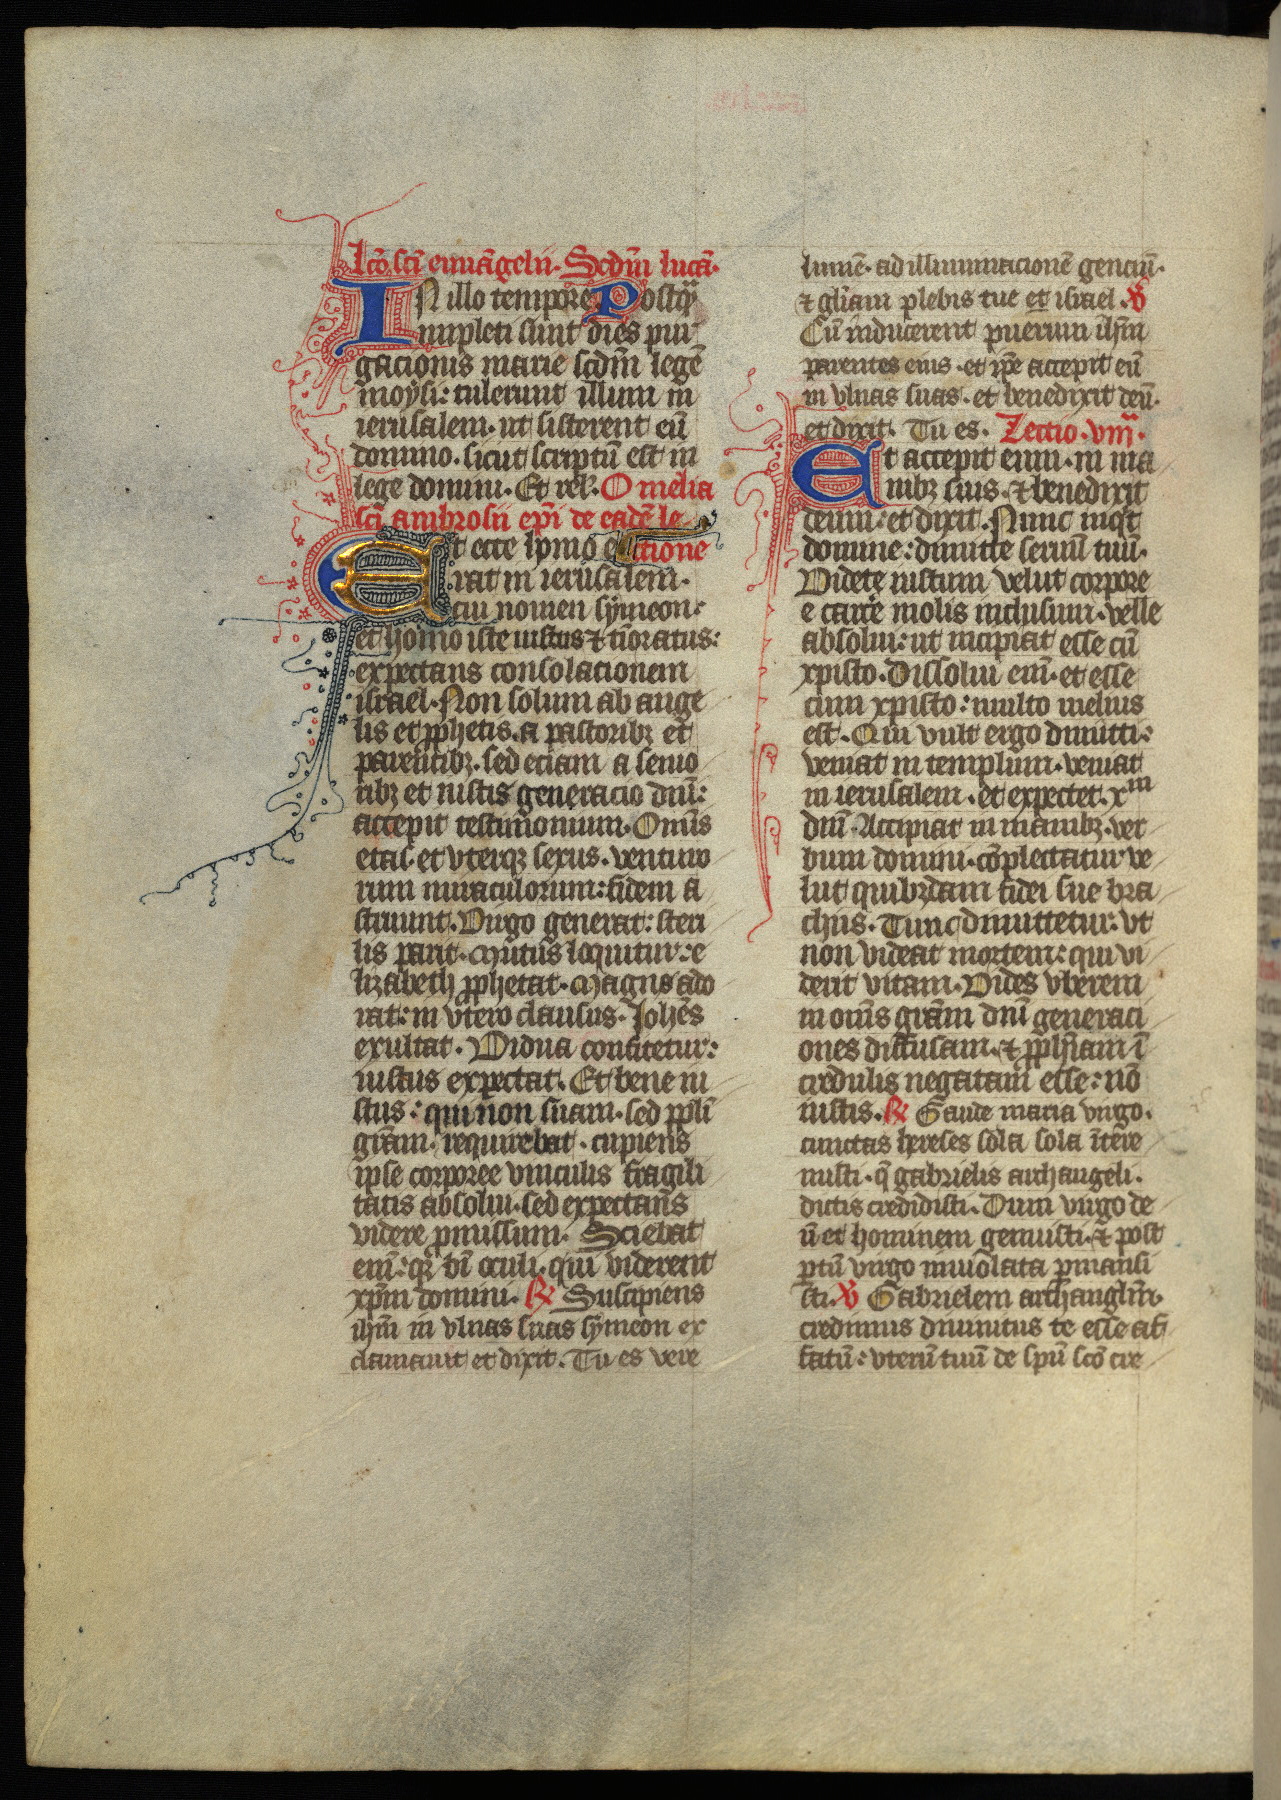 Lcō scī euuāgelii. Scdm̄ lucā.
IN illo tempore Postq̄
inpleti sunt dies pur
gacionis marie scdm̄ legē
moysi: tulerunt illum in
ierusalem. ut sisterent eū
domino. sicut scriptū est in
lege domini. Et rel. Omelia
scī ambrosii ep̄i de eadē le
Et ecce homo e ctione
rat in ierusalem.
cui nomen symeon.
et homo iste iustus ⁊ tīoratus:
expectans consolacionem
israel. Non solum ab ange
lis et ꝓphetis. a pastoribꝫ et
parentibꝫ. sed eciam a senio
ribꝫ et iustis generacio dnī:
accepit testimonium. Omīs
etas. et vterqꝫ sexus. venturo
rum miraculorum: fidem a
struunt. Virgo generat: steri
lis parit. Mutus loquitur: e
lizabeth ꝓphetat. Magus ado
rat: in vtero clausus. Johēs
exultat. Vidua confitetur:
iustus expectat. Et bene iu
stus: qui non suam. sed ppl̄i
grām. requirebat. cupiens
ipse corporee vinculis fragili
tatis absolui. sed expectans
videre ꝓmissum. Sciebat
enī: qꝫ bt̄i oculi. qui viderent
xp̄m domini. ℟ Suscipiens
ihm̄ in vlnas suas symeon ex
clamauit et dixit. Tu es vere
lumē. ad illuminacionē genciū.
⁊ glīam plebis tue et israel. ℣
Cū inducerent puerum ihm̄
parentes eius. et ip̄e accepit eū
in vlnas suas. et benedixit deū.
et dixit. Tu es. Lectio. viii.
Et accepit eum. in ma
nibꝫ suis. ⁊ benedixit
deum: et dixit. Nunc inq̇t
domine: dimitte seruū tuū.
Videte iustum velut corpore
e carce molis inclusum. velle
absolui: ut incipiat esse cū
xpisto. Dissolui enī. et esse
cum xpisto: multo melius
est. Qui vult ergo dimitti:
veniat in templum. veniat
in ierusalem. et expectet. xm
dnī. Accipiat in manibꝫ. ver
bum domini. cōplectatur ve
lut quibꝫdam fidei sue bra
chiis. Tunc dimittetur. vt
non videat mortem: qui vi
derit vitam. Vides vberem
in omīs grām dnī generaci
ones diffusam. ⁊ ꝓph̄iam ī
credulis negatam esse: nō
iustis. ℟ Gaude maria virgo.
cunctas hereses sola sola ītere
misti. q̄ gabrielis archangeli.
dictis credidisti. Dum virgo de
ū et hominem genuisti. ⁊ post
ꝑtū virgo inuiolata ꝑmansi
sti. ℣ Gabrielem archanglm̄.
credimus diuinitus te esse af
fatū: vterū tuū de spū scō cre